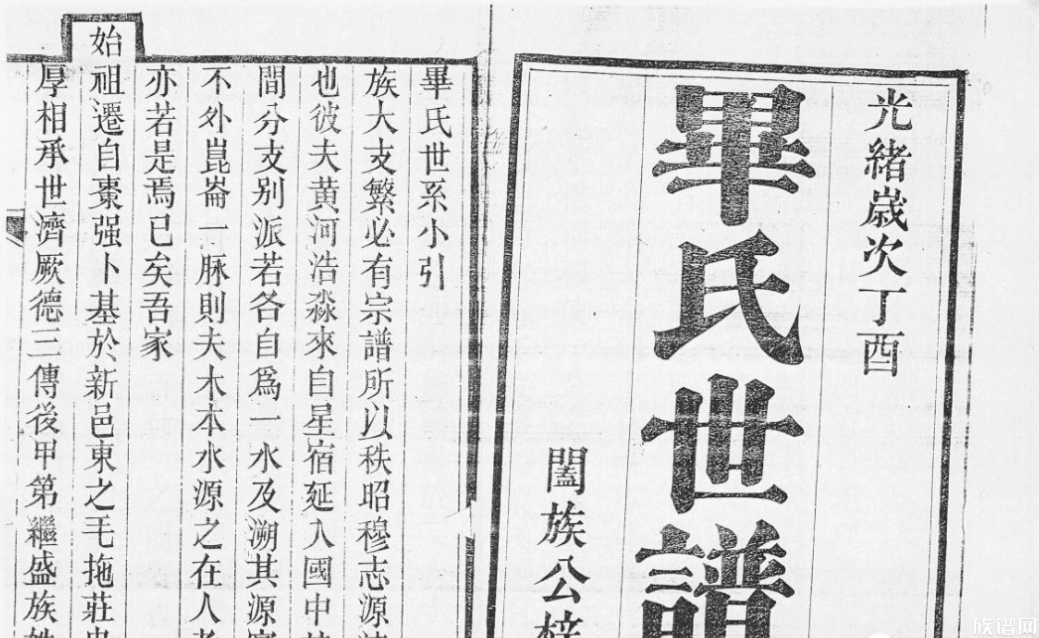 光緒歲次丁酉
畢氏世譜
闔族公梓
畢氏世系小引
族大支繁必有宗譜所以秩昭穆志源
也彼夫黄河浩淼來自星宿延入國中
間分支别派若各自爲 水及溯其源
不外崑崙一脉則夫木本水源之在人
亦若是焉已矣吾家
始祖遷自棗强卜基於新邑東之毛拖莊
厚相承世濟厥德三傳後甲第繼盛族
族谱网